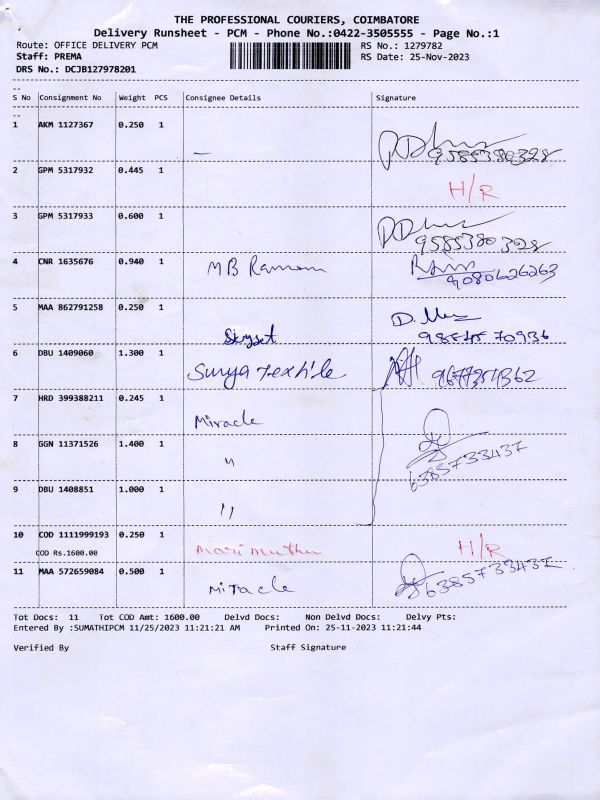 THE PROFESSIONAL COURIERS, COIMBATORE
Delivery Runsheet - PCM - Phone No.:0422-3505555 - Page No.:1
Route: OFFICE DELIVERY PCM RS No.: 1279782
Staff: PREMA RS Date: 25-Nov-2023
DRS No.: DCJB127978201
S No Consignment No Weight PCS Consignee Details Signature
1 AKM 1127367 0.250 1
9585380328
2 GPM 5317932 0.445 1
H/R
3 GPM 5317933 0.600 1
9585380328
4 CNR 1635676 0.940 1 MB Raman
9080626263
5 MAA 862791258 0.250 1
70936
6 DBU 1409060 1.300 1 Surya Textile
7 HRD 399388211 0.245 1
Miracle
8 GGN 11371526 1.400 1 "
6385733437
9 DBU 1408851 1.000 1
"
10 COD 1111999193 0.250 1
COD Rs.1600.00 Marimuthu H/R
11 MAA 572659084 0.500 1 Miracle 6385733437
Tot Docs: 11 Tot COD Amt: 1600.00 Delvd Docs: Non Delvd Docs: Delvy Pts:
Entered By :SUMATHIPCM 11/25/2023 11:21:21 AM Printed On: 25-11-2023 11:21:44
Verified By Staff Signature